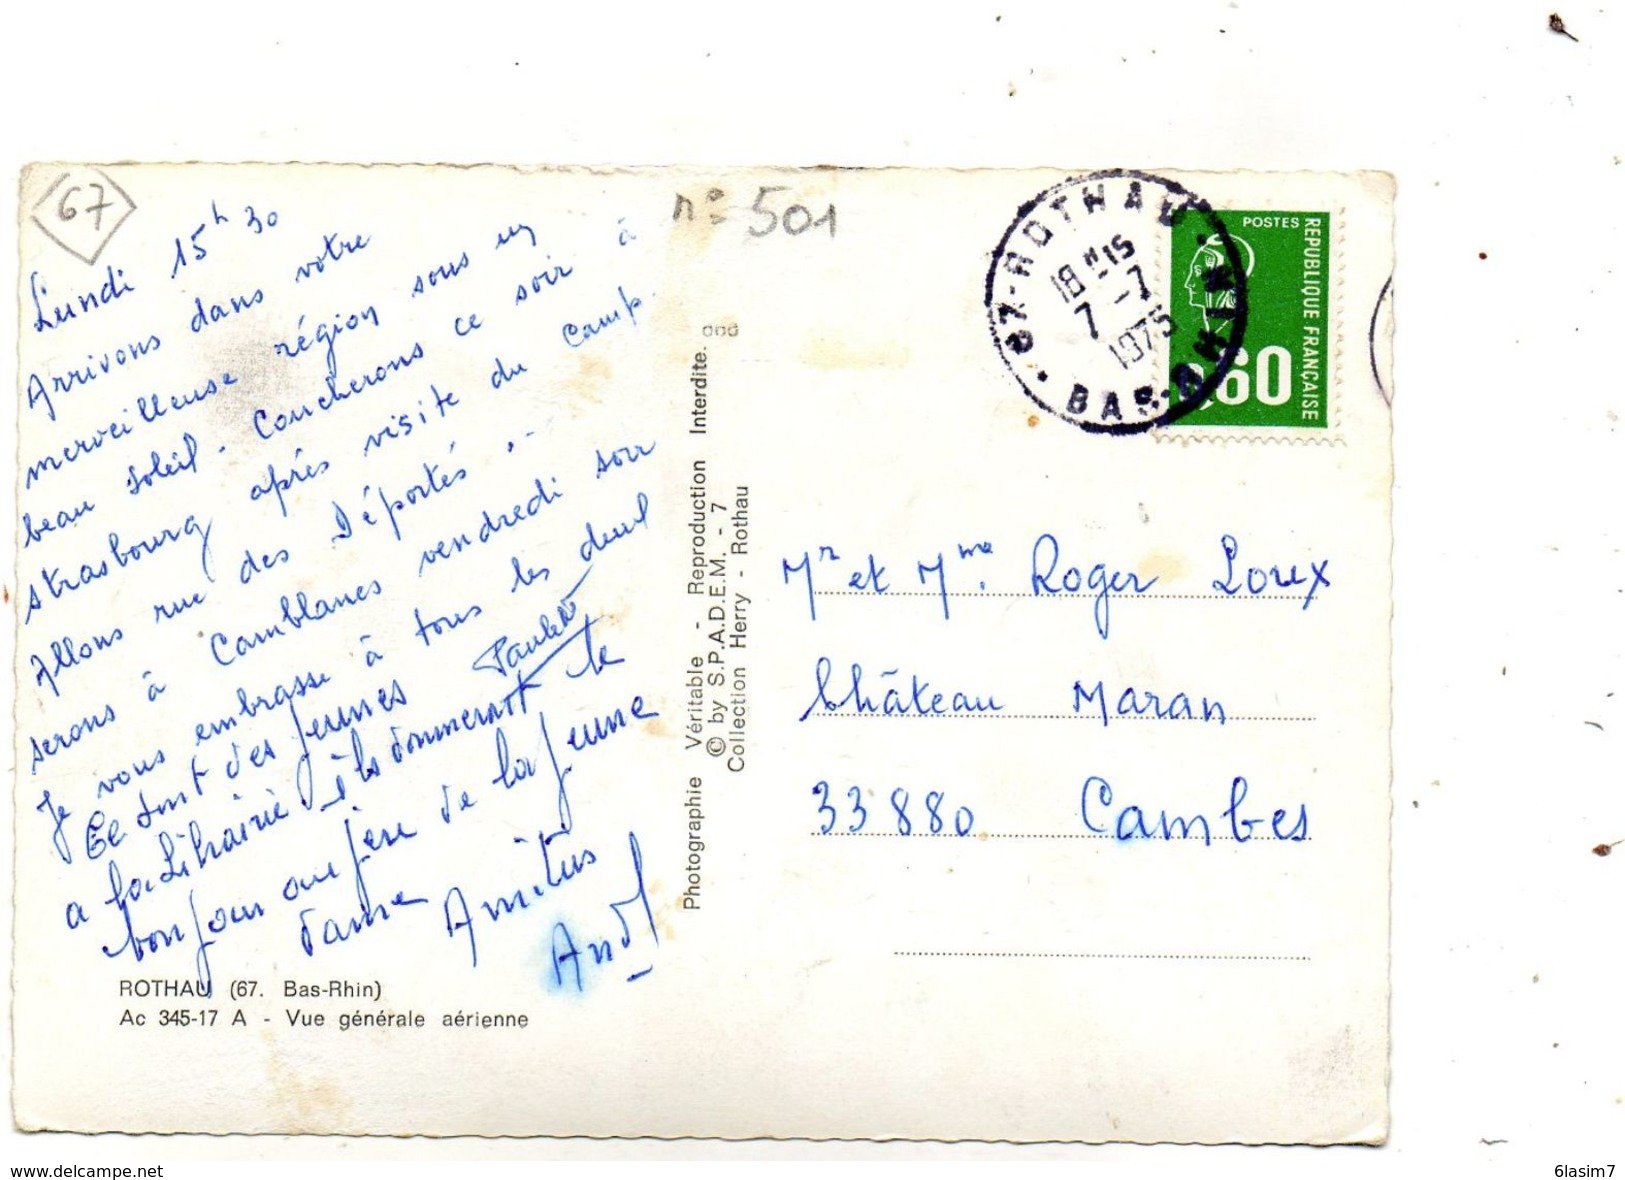 67
n° 501
Lundi 15h 30
Arrivons dans votre
merveilleuse région sous un
beau soleil. Coucherons ce soir à
strasbourg après visite du camp.
Allons rue des Déportés ...
serons à Camblanes vendredi soir
Je vous embrasse à tous les deux
Paulette
Ce sont des jeunes
a la librairie ils donneront le
bonjour au père de la jeune
dame Amitiés
ROTHAU (67. Bas-Rhin)
Ac 345-17 A - Vue générale aérienne
Photographie Véritable - Reproduction Interdite.
© by S.P.A.D.E.M. - 7
Collection Herry - Rothau
67-ROTHAU
18H15
7 -7
1975
BAS-RHIN
POSTES
REPUBLIQUE FRANÇAISE
0,60
Mr et Mme. Roger Loux
Château Maran
33880 Cambes
www.delcampe.net
6lasim7